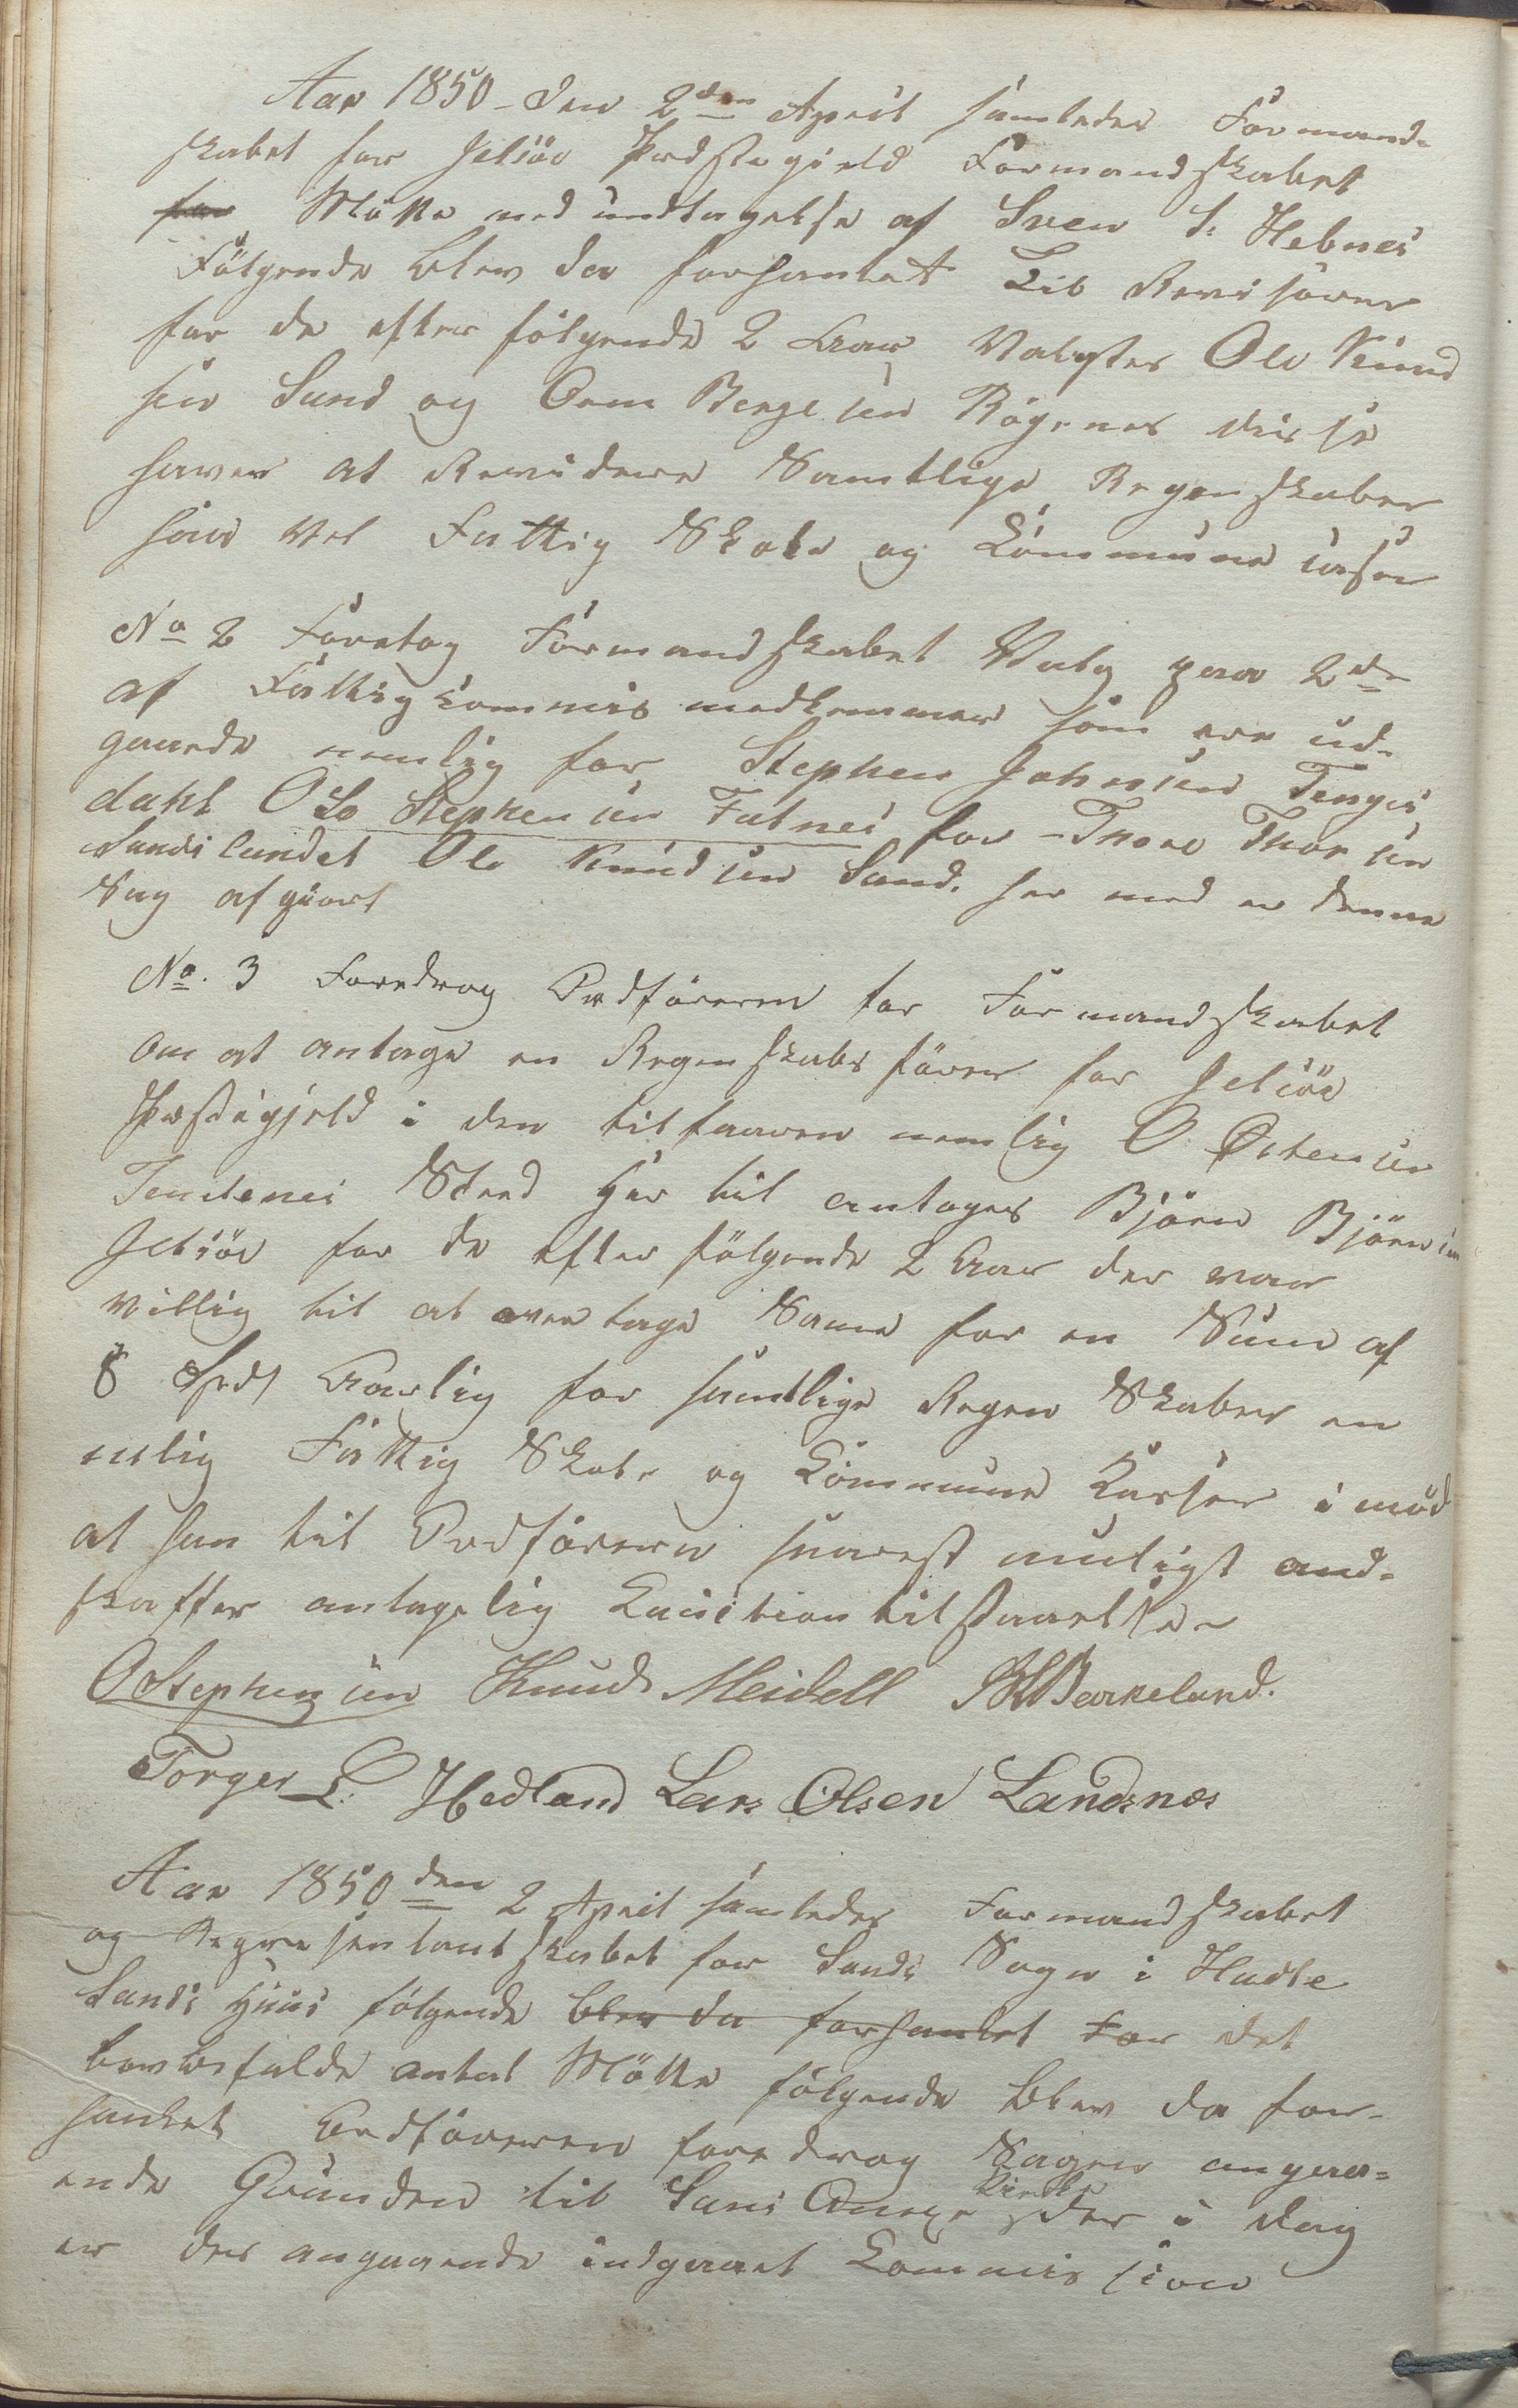 Aar 1850 - den 2den April samledes Formand-
skabet for Jelsöe Prdstegield Formandskabet
for Mötte med undtagelse af Sven S. Hebnes
Fölgende blev da forhanlet Til Revisörer
for de efter fölgende 2 Aar Valgtes Ole Knud
sen Sand og Orm Bergesen Rögenes disse
haver at Revidere Samtlige Regenskaber
saavel Fattig Skole og Commune casser
No 2 Foretog Formandskabet Valg paa 2de
af Fattigkommis medlemmer som ere ud-
gaaede nemlig for Stephen Johnsen Tengis
dahl O Stephensen Fatnes for - Thore Thorsen
Sandslandet Ole Knudsen Sand. her med er denne
Sag afgiort
No. 3 Foredrog Ordföreren for Formandskabet
om at antage en Regenskabsförer for Jelsöe
Prestegjeld i den tilfaaren nemlig O. Östensen
Sted Her til antoges Björn Björnsen
Jelsöe for de efter fölgende 2 Aar der var
villig til at overtage Same for en Sum af
8 Spd Aarlig for samtlige Regen Skaber en
mlig Fattig Skole og Commune Kasser imod
at han til Ordföreren snarest muligst and-
skaffer antagelig Caution tilstaarelse
OStephensen Knud Meidell Barkeland.
Torger L. Hedland Lars Olsen Landsnæs
Aar 1850 den 2 April samledes Formandskabet
og Representantskabet for Sands Sogn i Hadle
Sands Huus fölgende blev da forhanlet For det
bevbefalde antal Mötte fölgende blev da for-
hanlet Ordföreren foredrog Sagen angaa-
ende Grunden til Sans Anexe Kirke der i dag
er der angaaende indgaaet Commission